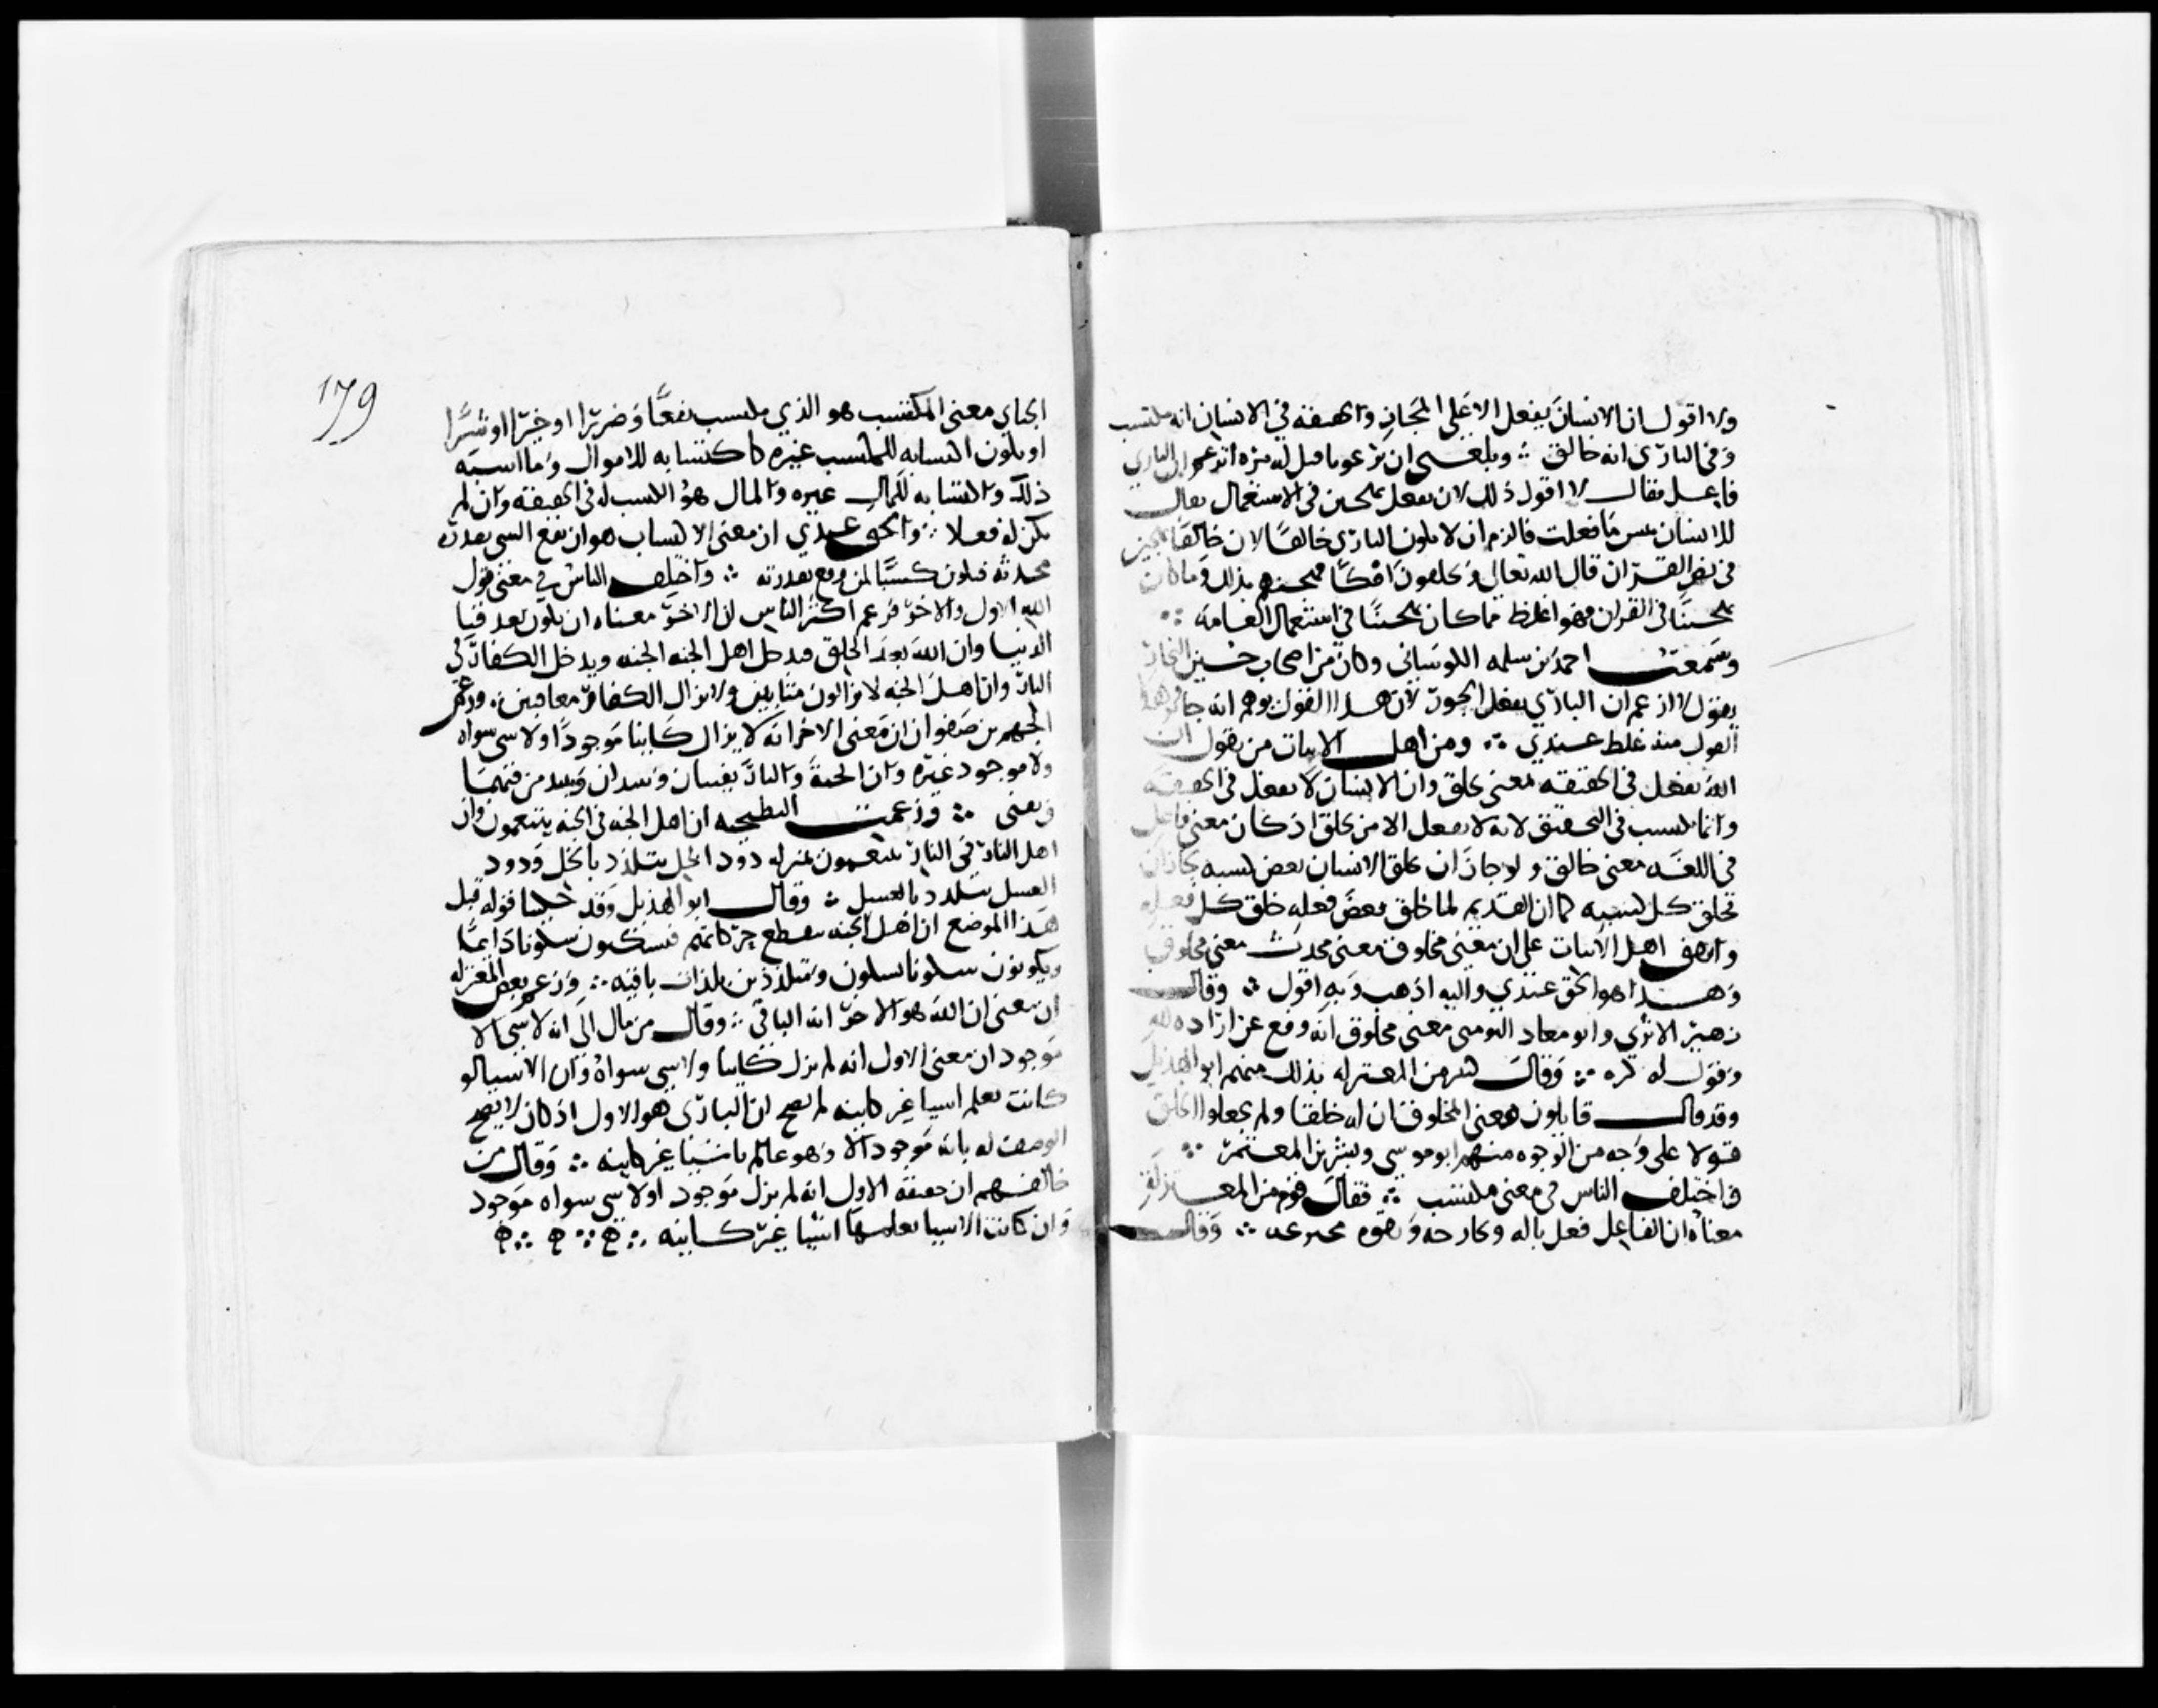 ولا اقول ان الانسان يفعل الا على المجاز والحقيقة في الانسان انه مكتسب
وفي الباري انه خالق ∴ وبلغني ان برغوثا قيل له مرة اتزعم ان الباري
فاعل فقال لا اقول ذلك لان يفعل يستهجن في الاستعمال يقال
للانسان بئس ما فعلت فالزم ان لا يكون الباري خالقا لان خالقا تهجين
في نص القران قال الله تعالى وتخلقون افكا فهجنهم بذلك وما كان
يستهجنا في القران فهو اغلظ مما كان مستهجنا في استعمال العامة ∴
وسمعت احمد بن سلمه الكوشاني وكان من اصحاب حسين النجار
يقول لا ازعم ان الباري يفعل الجور لان هذا القول يوهم انه جائر وهذا
القول منه غلط عندي ∴ ومن اهل الاثبات من يقول ان
الله يفعل في الحقيقه بمعنى يخلق وان الانسان لا يفعل في الحقيقه
وانما يكتسب في التحقيق لانه لا يفعل الا من يخلق اذ كان معنى فاعل
في اللغه معنى خالق ولو جاز ان يخلق الانسان بعض كسبه لجاز ان
يخلق كل كسبه كما ان القديم لما خلق بعض فعله خلق كل فعله
واتفق اهل الاثبات على ان معنى مخلوق معنى محدث معنى مخلوق
وهذا هو الحق عندي واليه اذهب وبه اقول ∴ وقال
زهير الاثري وابو معاذ التومني معنى مخلوق انه وقع عن ارادة لله
وقول له كن ∴ وقال كثير من المعتزله بذلك منهم ابو الهذيل
وقد قال قائلون معنى المخلوق ان له خلقا ولم يجعلوا الخلق
قولا على وجه من الوجوه منهم ابو موسى وبشر بن المعتمر ∴
واختلف الناس في معنى مكتسب ∴ فقال قوم من المعتزله
معناه ان الفاعل فعل بالة وبجارحه وبقوه مخترعه ∴ وقال
179
الجباي معنى المكتسب هو الذي يكتسب نفعا وضررا او خيرا او شرا
او يكون اكتسابه للمكتسب غيره كاكتسابه للاموال وما اشبه
ذلك واكتسابه للمال غيره والمال هو الكسب له في الحقيقة وان لم
يكن له فعلا ∴ والحق عندي ان معنى الاكتساب هو ان يقع الشي بقدرة
محدثه فيكون كسبا لمن وقع بقدرته ∴ واختلف الناس في معنى قول
الله الاول والاخر فزعم اكثر الناس ان الاخر معناه ان يكون بعد فنا
الدنيا وان الله بعد الخلق يدخل اهل الجنه الجنه ويدخل الكفار في
النار وان اهل الجنه لا يزالون مثابين ولا يزال الكفار معاقبين ∴ وزعم
الجهم بن صفوان ان معنى الاخر انه لا يزال كاينا موجودا ولا شي سواه
ولا موجود غيره وان الجنة والنار يفنيان ويبيدان ويبيد من فيهما
ويفنى ∴ وزعمت البطيخيه ان اهل الجنه في الجنه يتنعمون وان
اهل النار في النار يتنعمون بمنزله دود الخل يتلذذ بالخل ودود
العسل يتلذذ بالعسل ∴ وقال ابو الهذيل وقد حكينا قوله قبل
هذا الموضع ان اهل الجنه ينقطع حركاتهم فيسكنون سكونا دايما
ويكونون سكونا بسكون ومتلذذين بلذات باقيه ∴ وزعم بعض المعتزله
ان معنى ان الله هو الاخر انه الباقي ∴ وقال من مال الى انه لا شي الا
موجود ان معنى الاول انه لم يزل كاينا ولا شي سواه وان الاشيا لو
كانت تعلم اشيا غير كاينه لم يصح ان الباري هو الاول اذ كان لا يصح
الوصف له بانه موجود الا وهو عالم باشيا غير كاينه ∴ وقال من
خالفهم ان حقيقة الاول انه لم يزل موجود اولا شي سواه موجود
وان كانت الاشيا يعلمها اشيا غير كاينه ∴ ه ∴ ه ∴ ه